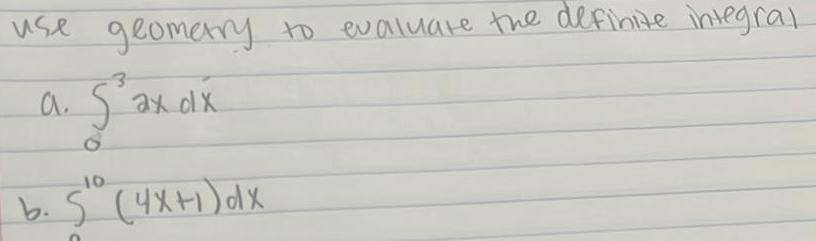 use geometry to evaluate the definite integral
a. ∫₀³ 2x dx
b. ∫₀¹⁰ (4x+1)dx